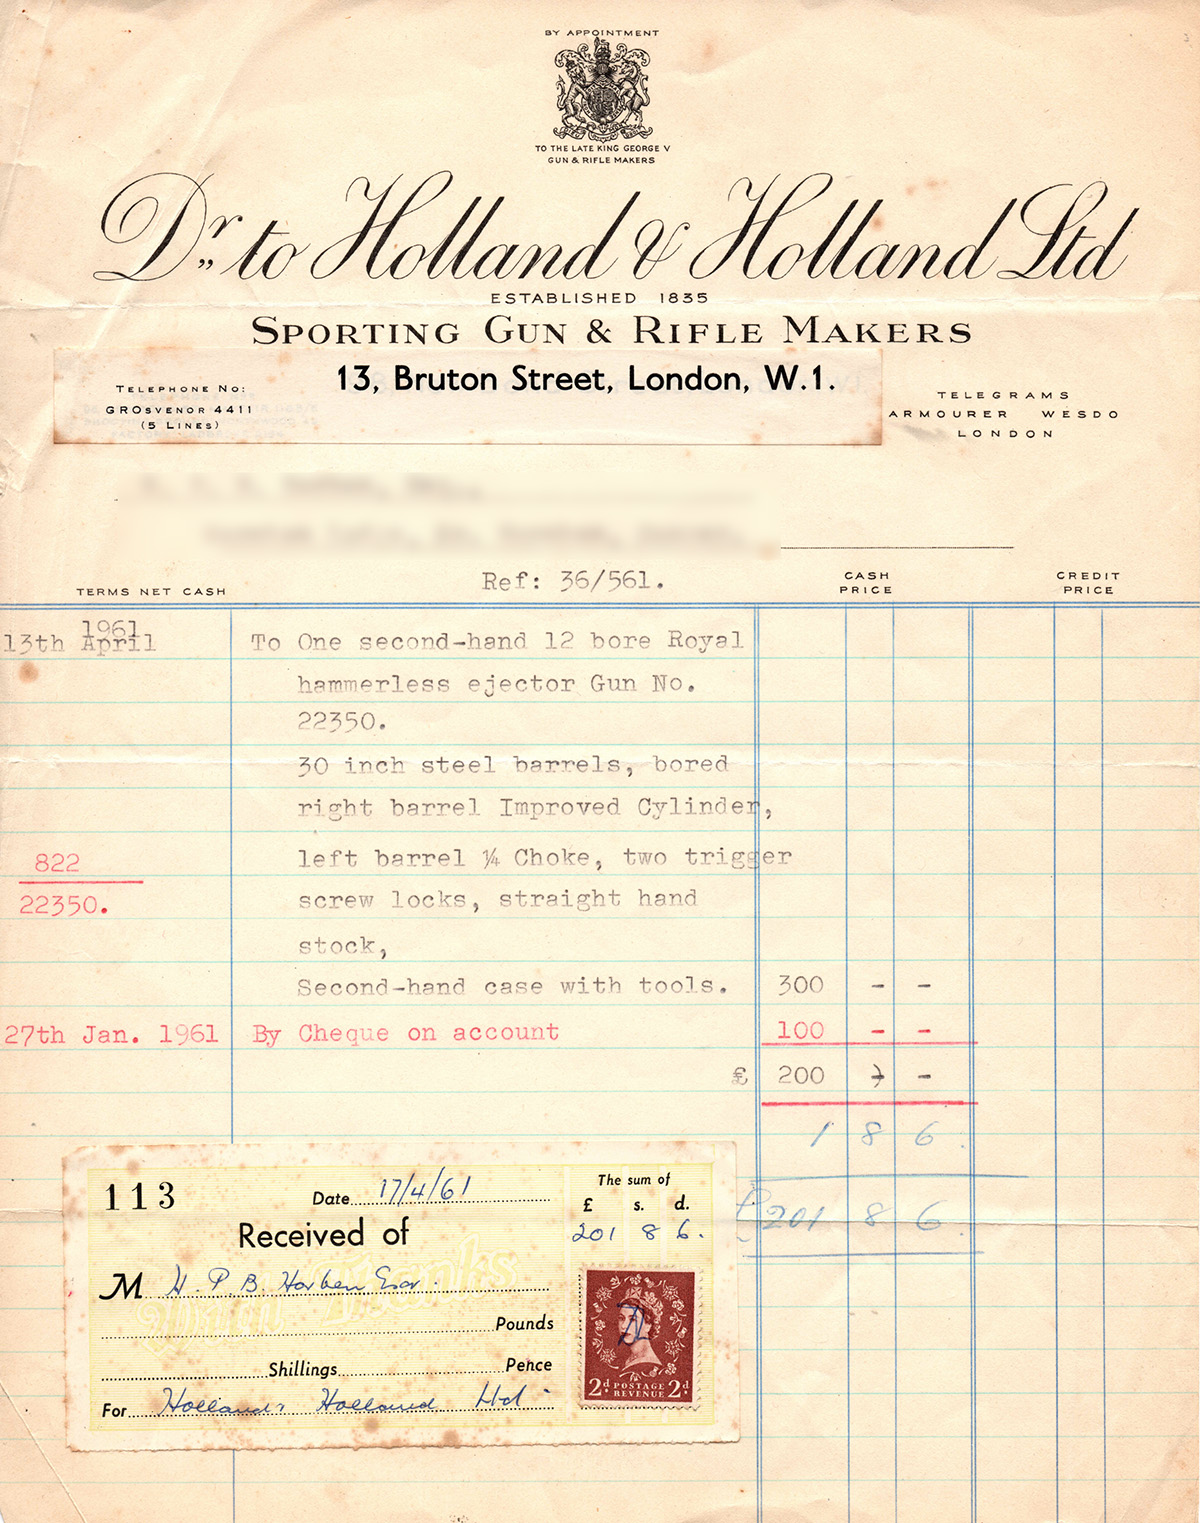 BY APPOINTMENT
TO THE LATE KING GEORGE V
GUN & RIFLE MAKERS
Dr. to Holland & Holland Ltd
ESTABLISHED 1835
SPORTING GUN & RIFLE MAKERS
13, Bruton Street, London, W.1.
TELEPHONE NO:
GROSVENOR 4411
(5 LINES)
TELEGRAMS
ARMOURER WESDO
LONDON
TERMS NET CASH
Ref: 36/561.
CASH PRICE
CREDIT PRICE
1961
13th April To One second-hand 12 bore Royal
hammerless ejector Gun No.
22350.
30 inch steel barrels, bored
right barrel Improved Cylinder,
822 left barrel ¼ Choke, two trigger
22350. screw locks, straight hand
stock,
Second-hand case with tools. 300 - -
27th Jan. 1961 By Cheque on account 100 - -
£ 200 - -
1 8 6.
£ 201 8 6.
113
Date 17/4/61
The sum of
£ s. d.
Received of
201 8 6.
M H. P. B. Harben Esqr.
Pounds
Shillings Pence
For Holland & Holland Ltd
2d POSTAGE REVENUE 2d